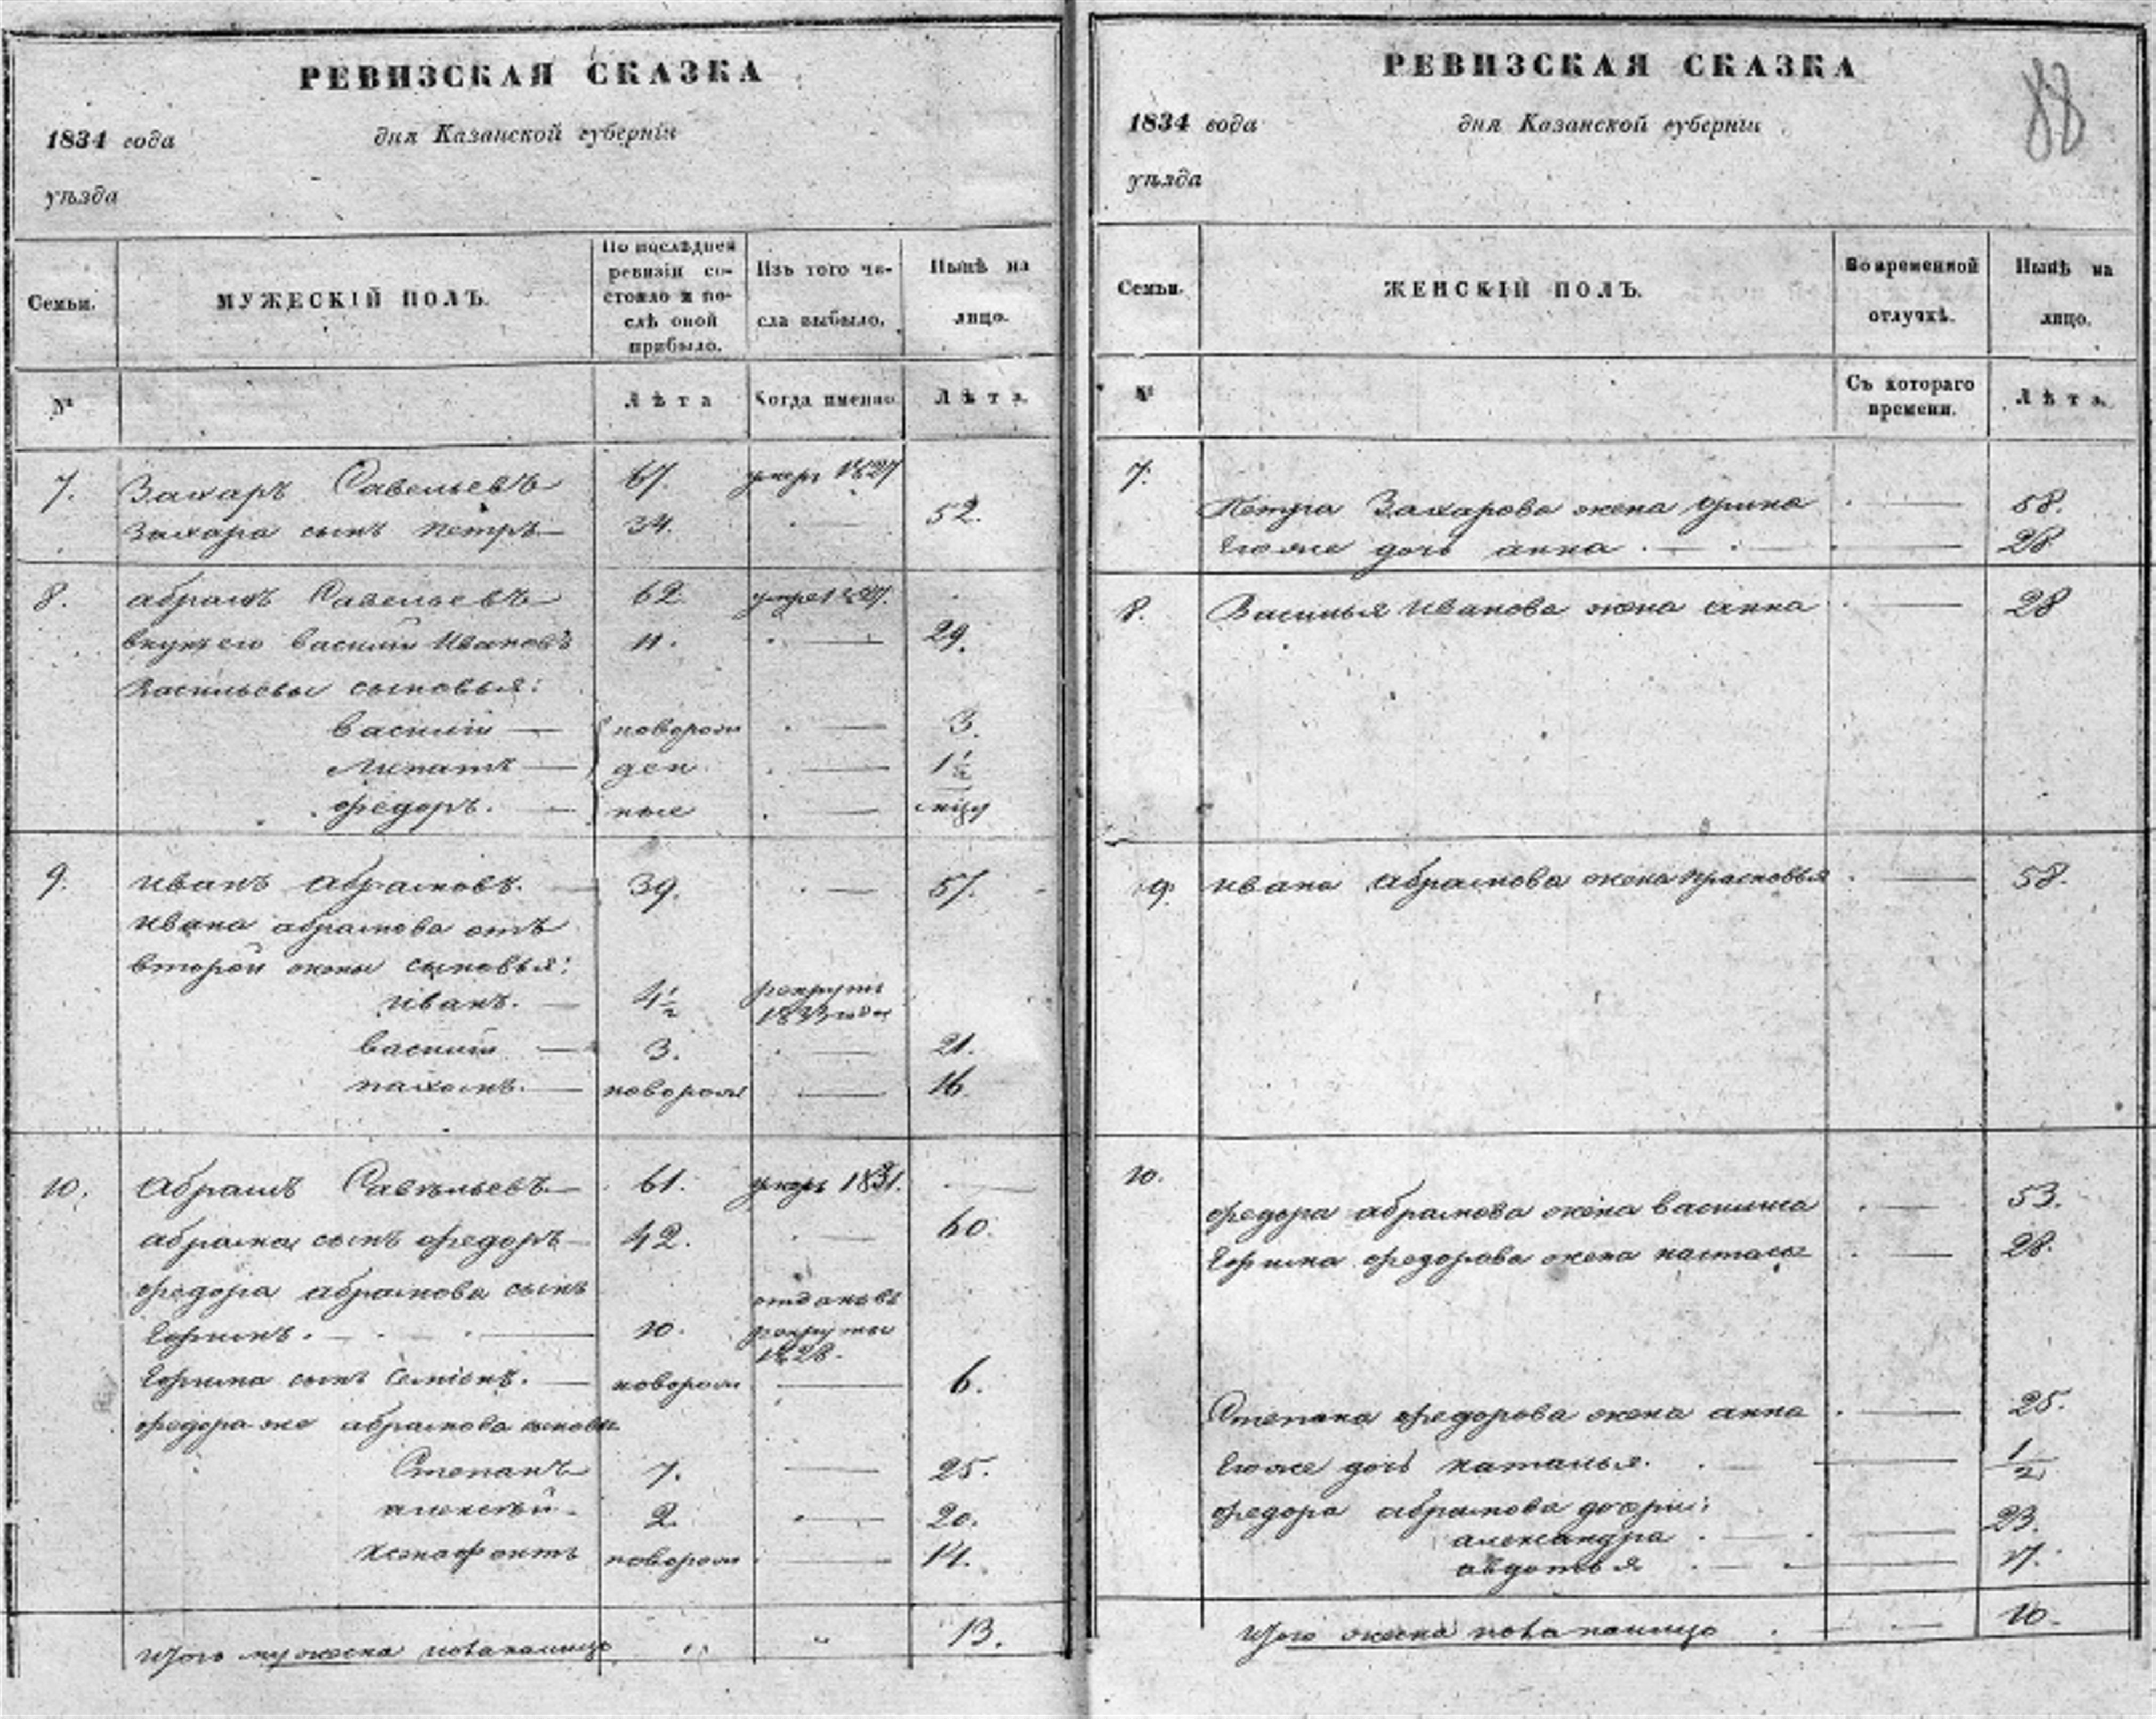 РЕВИЗСКАЯ СКАЗКА
1834 года дня Казанской губерніи
уѣзда
Семьи.
МУЖЕСКІЙ ПОЛЪ.
По послѣдней ревизіи со-
стояло и по-
слѣ оной
прибыло.
Изъ того чи-
сла выбыло.
Нынѣ на
лицо.
№
Лѣта
Когда именно.
Лѣта.
7. Захаръ Савельевъ 67. умеръ 1827
Захара сынъ Петръ 34. 52.
8. абрамъ Савельевъ 62 умре 1827.
внукъ его Василій Ивановъ 11. 29.
Васильевы сыновья:
Василій новорож 3.
Ипатъ ден 1½
Ѳедоръ. ные
9. иванъ абрамовъ. 39. 57.
ивана абрамова отъ
второй жены сыновья:
иванъ. 4½ рекрутъ
1833 года
василій 3. 21.
пахомъ. новорож 16.
10. Абрамъ Савельевъ 61. умеръ 1831.
абрама сынъ Ѳедоръ 42. 60.
Ѳедора абрамова сынъ
Ефимъ. 10. отданъ въ
рекруты
1828.
Ефима сынъ Семіонъ. новорож 6.
Ѳедора же абрамова сыновья
Степанъ 7. 25.
алексѣй 2. 20.
Ксенофонтъ новорож 14.
Итого мужеска пола налицо 13.
РЕВИЗСКАЯ СКАЗКА
88
1834 года дня Казанской губерніи
уѣзда
Семьи.
ЖЕНСКІЙ ПОЛЪ.
Во временной
отлучкѣ.
Нынѣ на
лицо.
№
Съ котораго
времени.
Лѣта.
7.
Петра Захарова жена Ирина 58.
Его же дочь анна 28
8. Василья Иванова жена анна 28
9. ивана абрамова жена прасковья 58.
10.
Ѳедора абрамова жена василиса 53.
Ефима Ѳедорова жена настасья 28.
Степана Ѳедорова жена анна 25.
Его же дочь наталья. ½
Ѳедора абрамова дочери:
александра 23.
авдотья 17.
Итого женска пола налицо 10.